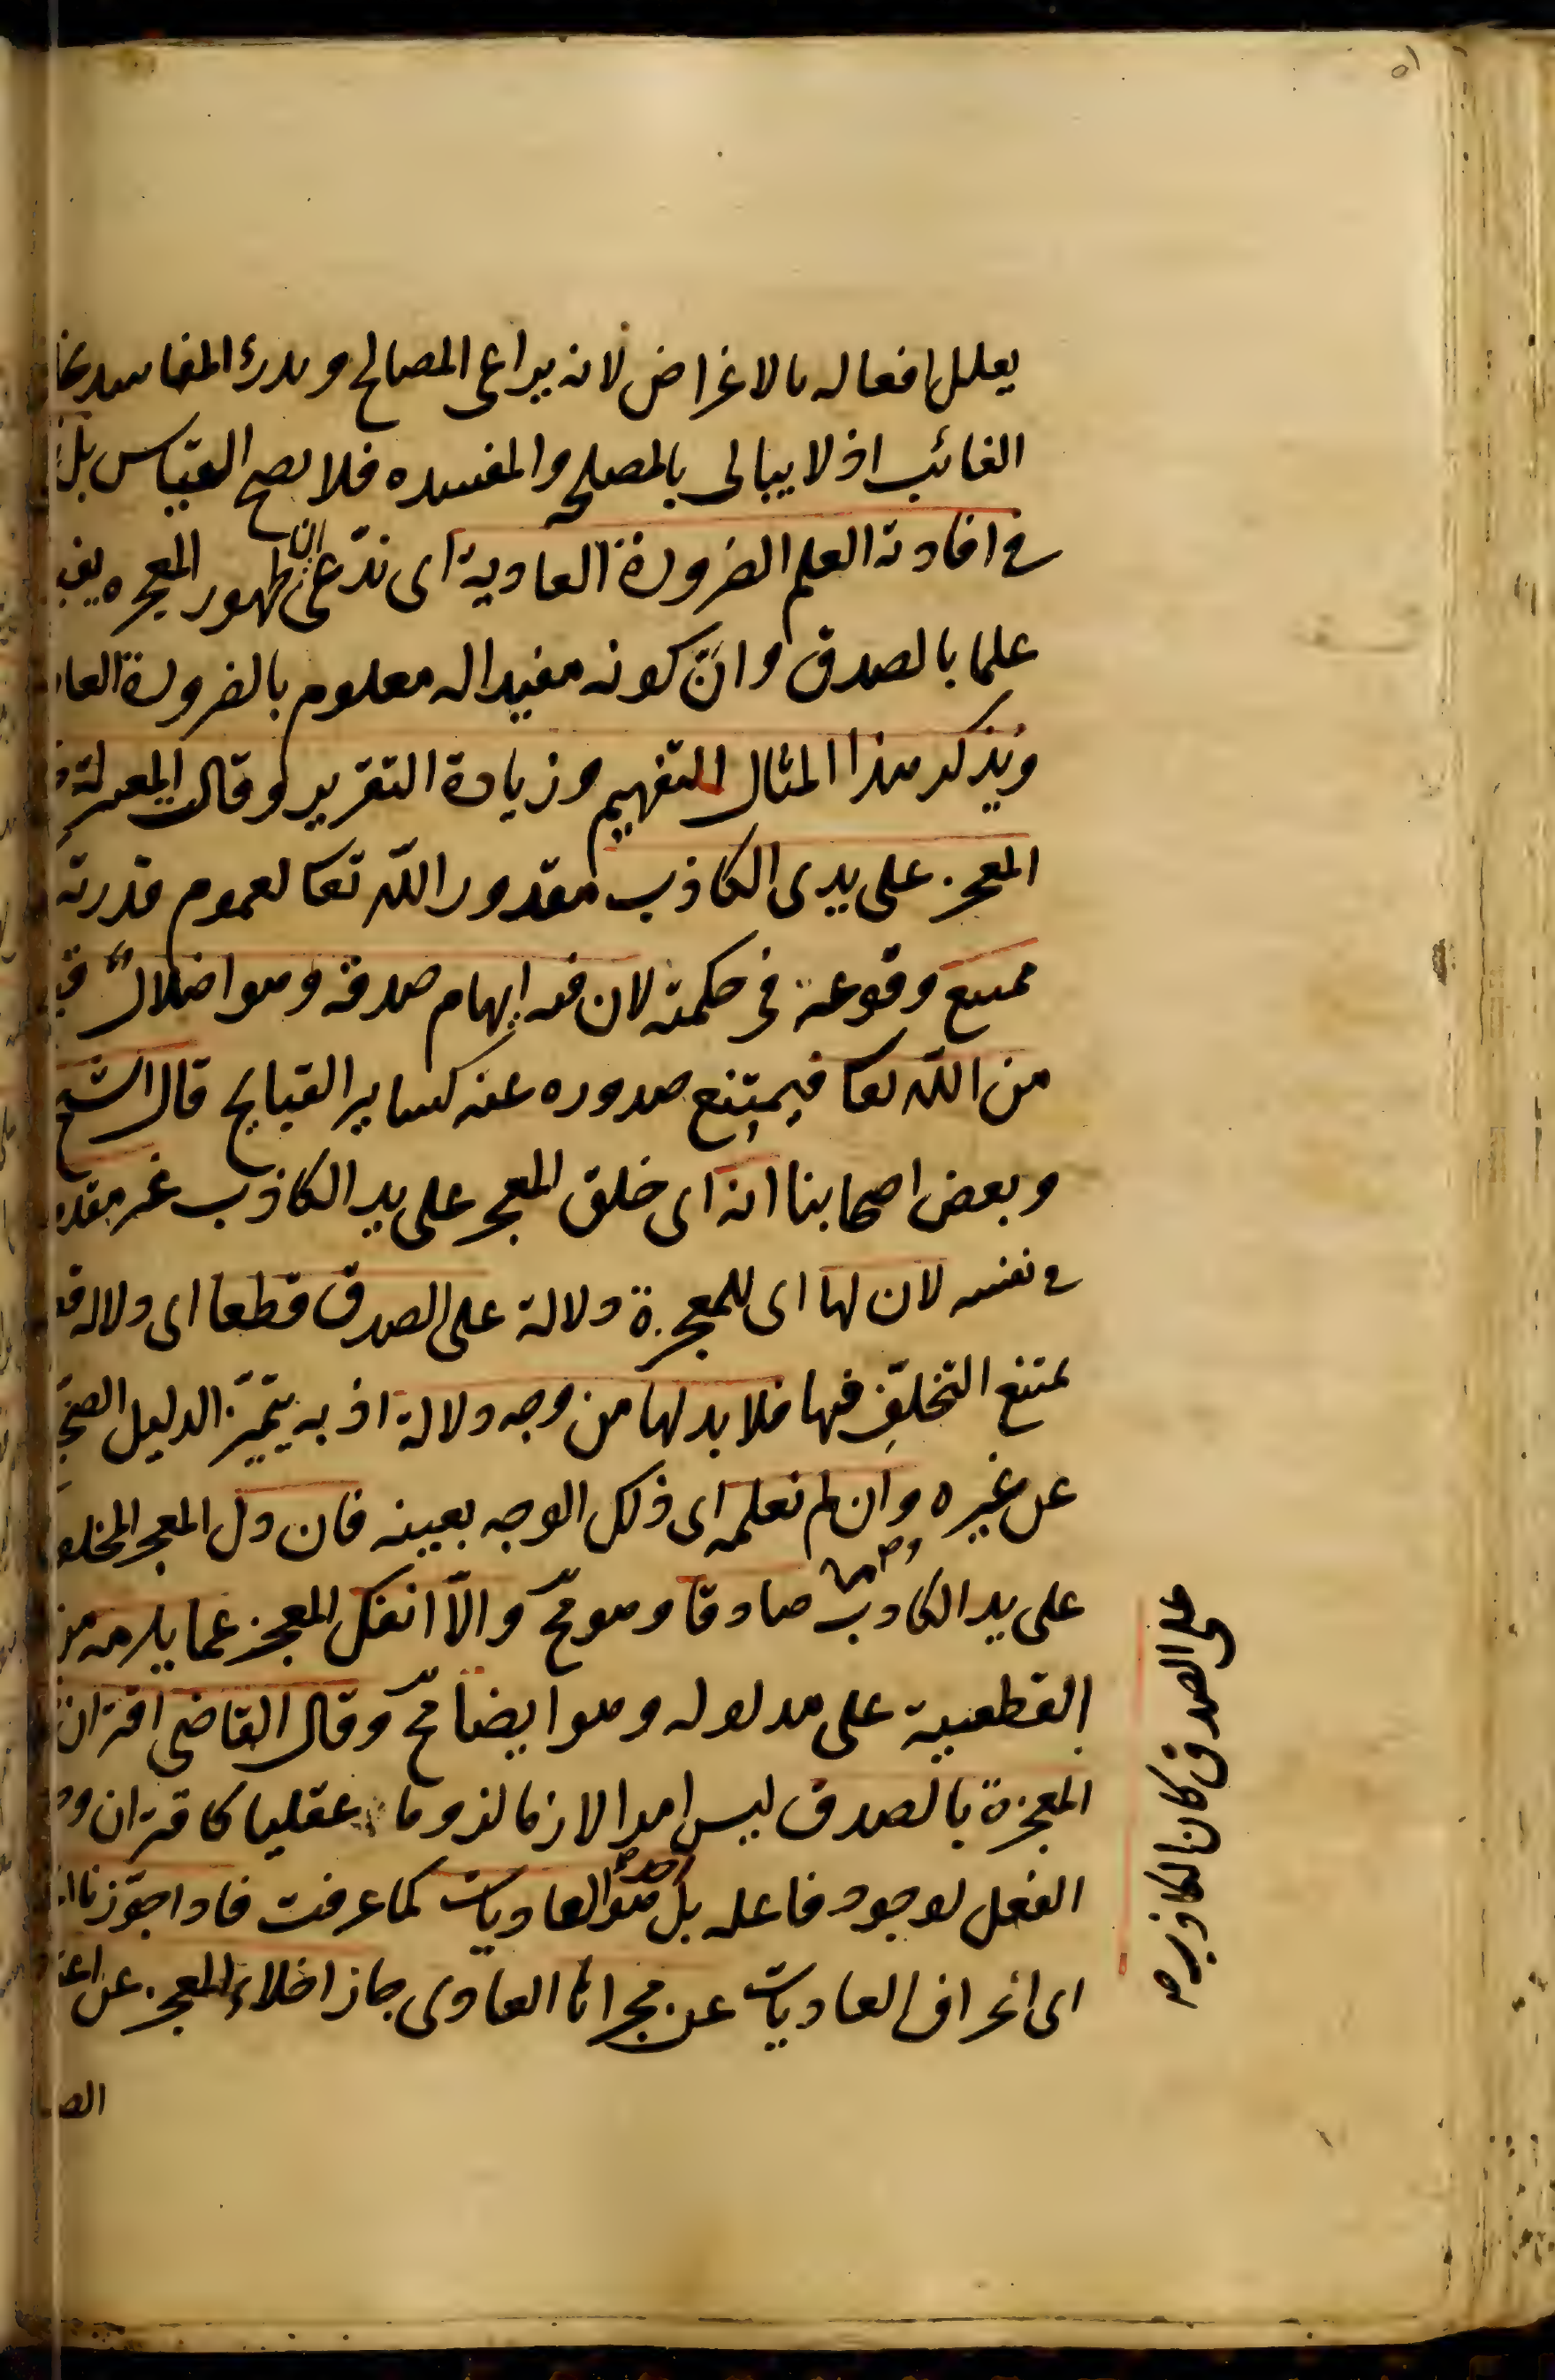 ٥١
يعلل افعاله بالاغراض لانه يراعى المصالح ويدرء المفاسد بخلا
الغائب اذ لا يبالى بالمصلحة والمفسده فلا يصح القياس بل
فى افادته العلم الضرورة العادية اى ندعى ان ظهور المعجزه يفيد
علما بالصدق وانّ كونه مفيدا له معلوم بالضرورة العا
ونذكر هذا المثال للتفهيم وزيادة التقرير وقال المعتزلة
المعجز على يدى الكاذب مقدور الله تعا لعموم قدرته
ممتنع وقوعه فى حكمته لان فيه ايهام صدقه وهو اضلال
من الله تعا فيمتنع صدوره عنه كساير القبايح قال الشيخ
وبعض اصحابنا انه اى خلق المعجز على يد الكاذب غير مقدو
فى نفسه لان لها اى للمعجزة دلالة على الصدق قطعا اى دلالة
يمتنع التخلّف فيها فلا بد لها من وجه دلالة اذ به يتميّز الدليل الصحيح
عن غيره وان لم نعلمه اى ذلك الوجه بعينه فان دل المعجز المخلو
على يد الكاذب صادقا وهو محّ والاّ انفك المعجز عما يلزمه من
القطعية على مدلوله وهو ايضا محّ وقال القاضى اقتران
المعجزة بالصدق ليس امرا لازما لزوما عقليا كاقتران و
الفعل لوجود فاعله بل هو احد العاديات كما عرفت فاذا جوّزنا
اى انخراق العاديات عن مجراها العادى جاز اخلاء المعجز عن اعتـ
الصـ
على الصدق كان الكاذب